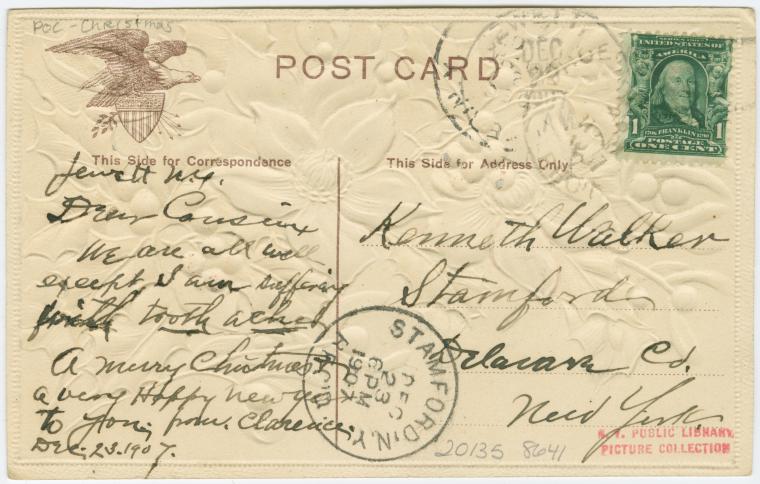 POC - Christmas
POST CARD
SERIES 1902
UNITED STATES OF
AMERICA
1
1
1706 FRANKLIN 1790
POSTAGE
ONE CENT
DEC
This Side for Correspondence
This Side for Address Only.
Jewett N.Y.
Dear Cousin
We are all well
except I am suffering
with tooth ache
A merry Christmas &
a very Happy new year
to you, from Clarence.
Dec. 23. 1907.
Kenneth Walker
Stamford
Delaware Co.
New York.
STAMFORD, N.Y.
DEC
23
6 PM
190
REC'D.
20135 8641
N. Y. PUBLIC LIBRARY
PICTURE COLLECTION